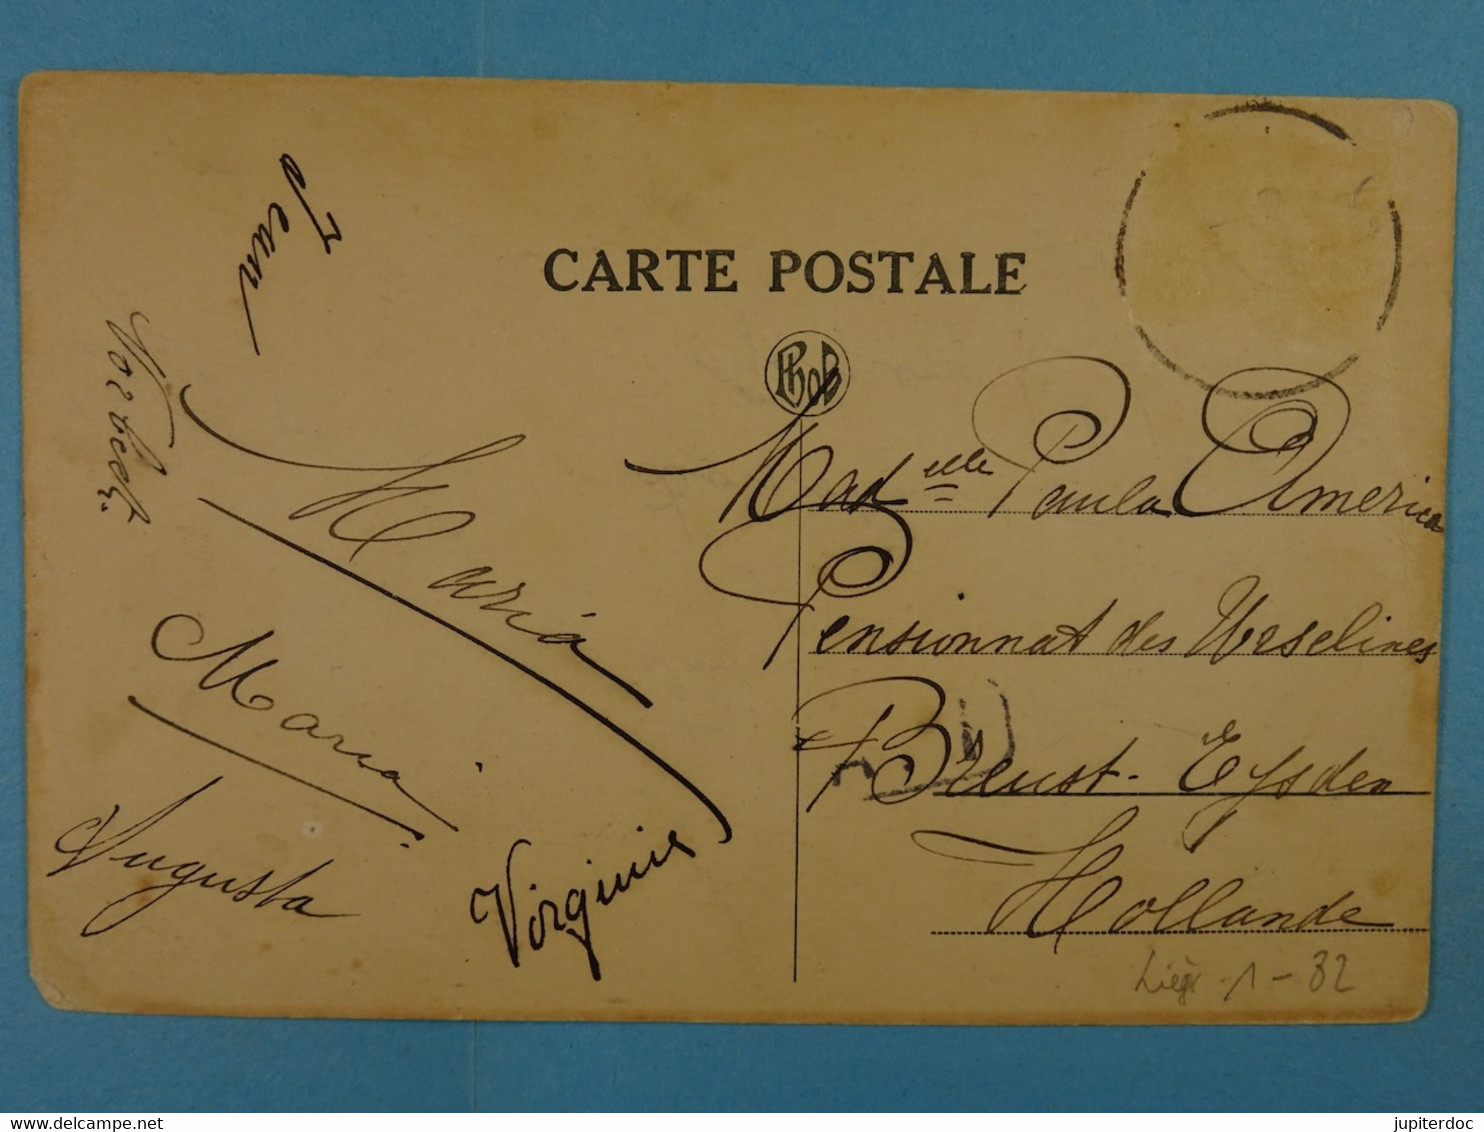 CARTE POSTALE
PhoB
Jean
Maria
Maria
Augusta
Virginie
Madelle Paula America
Pensionnat des Urselines
Breust-Eysden
Hollande
Liège -1-32
delcampe.net
jupiterdoc